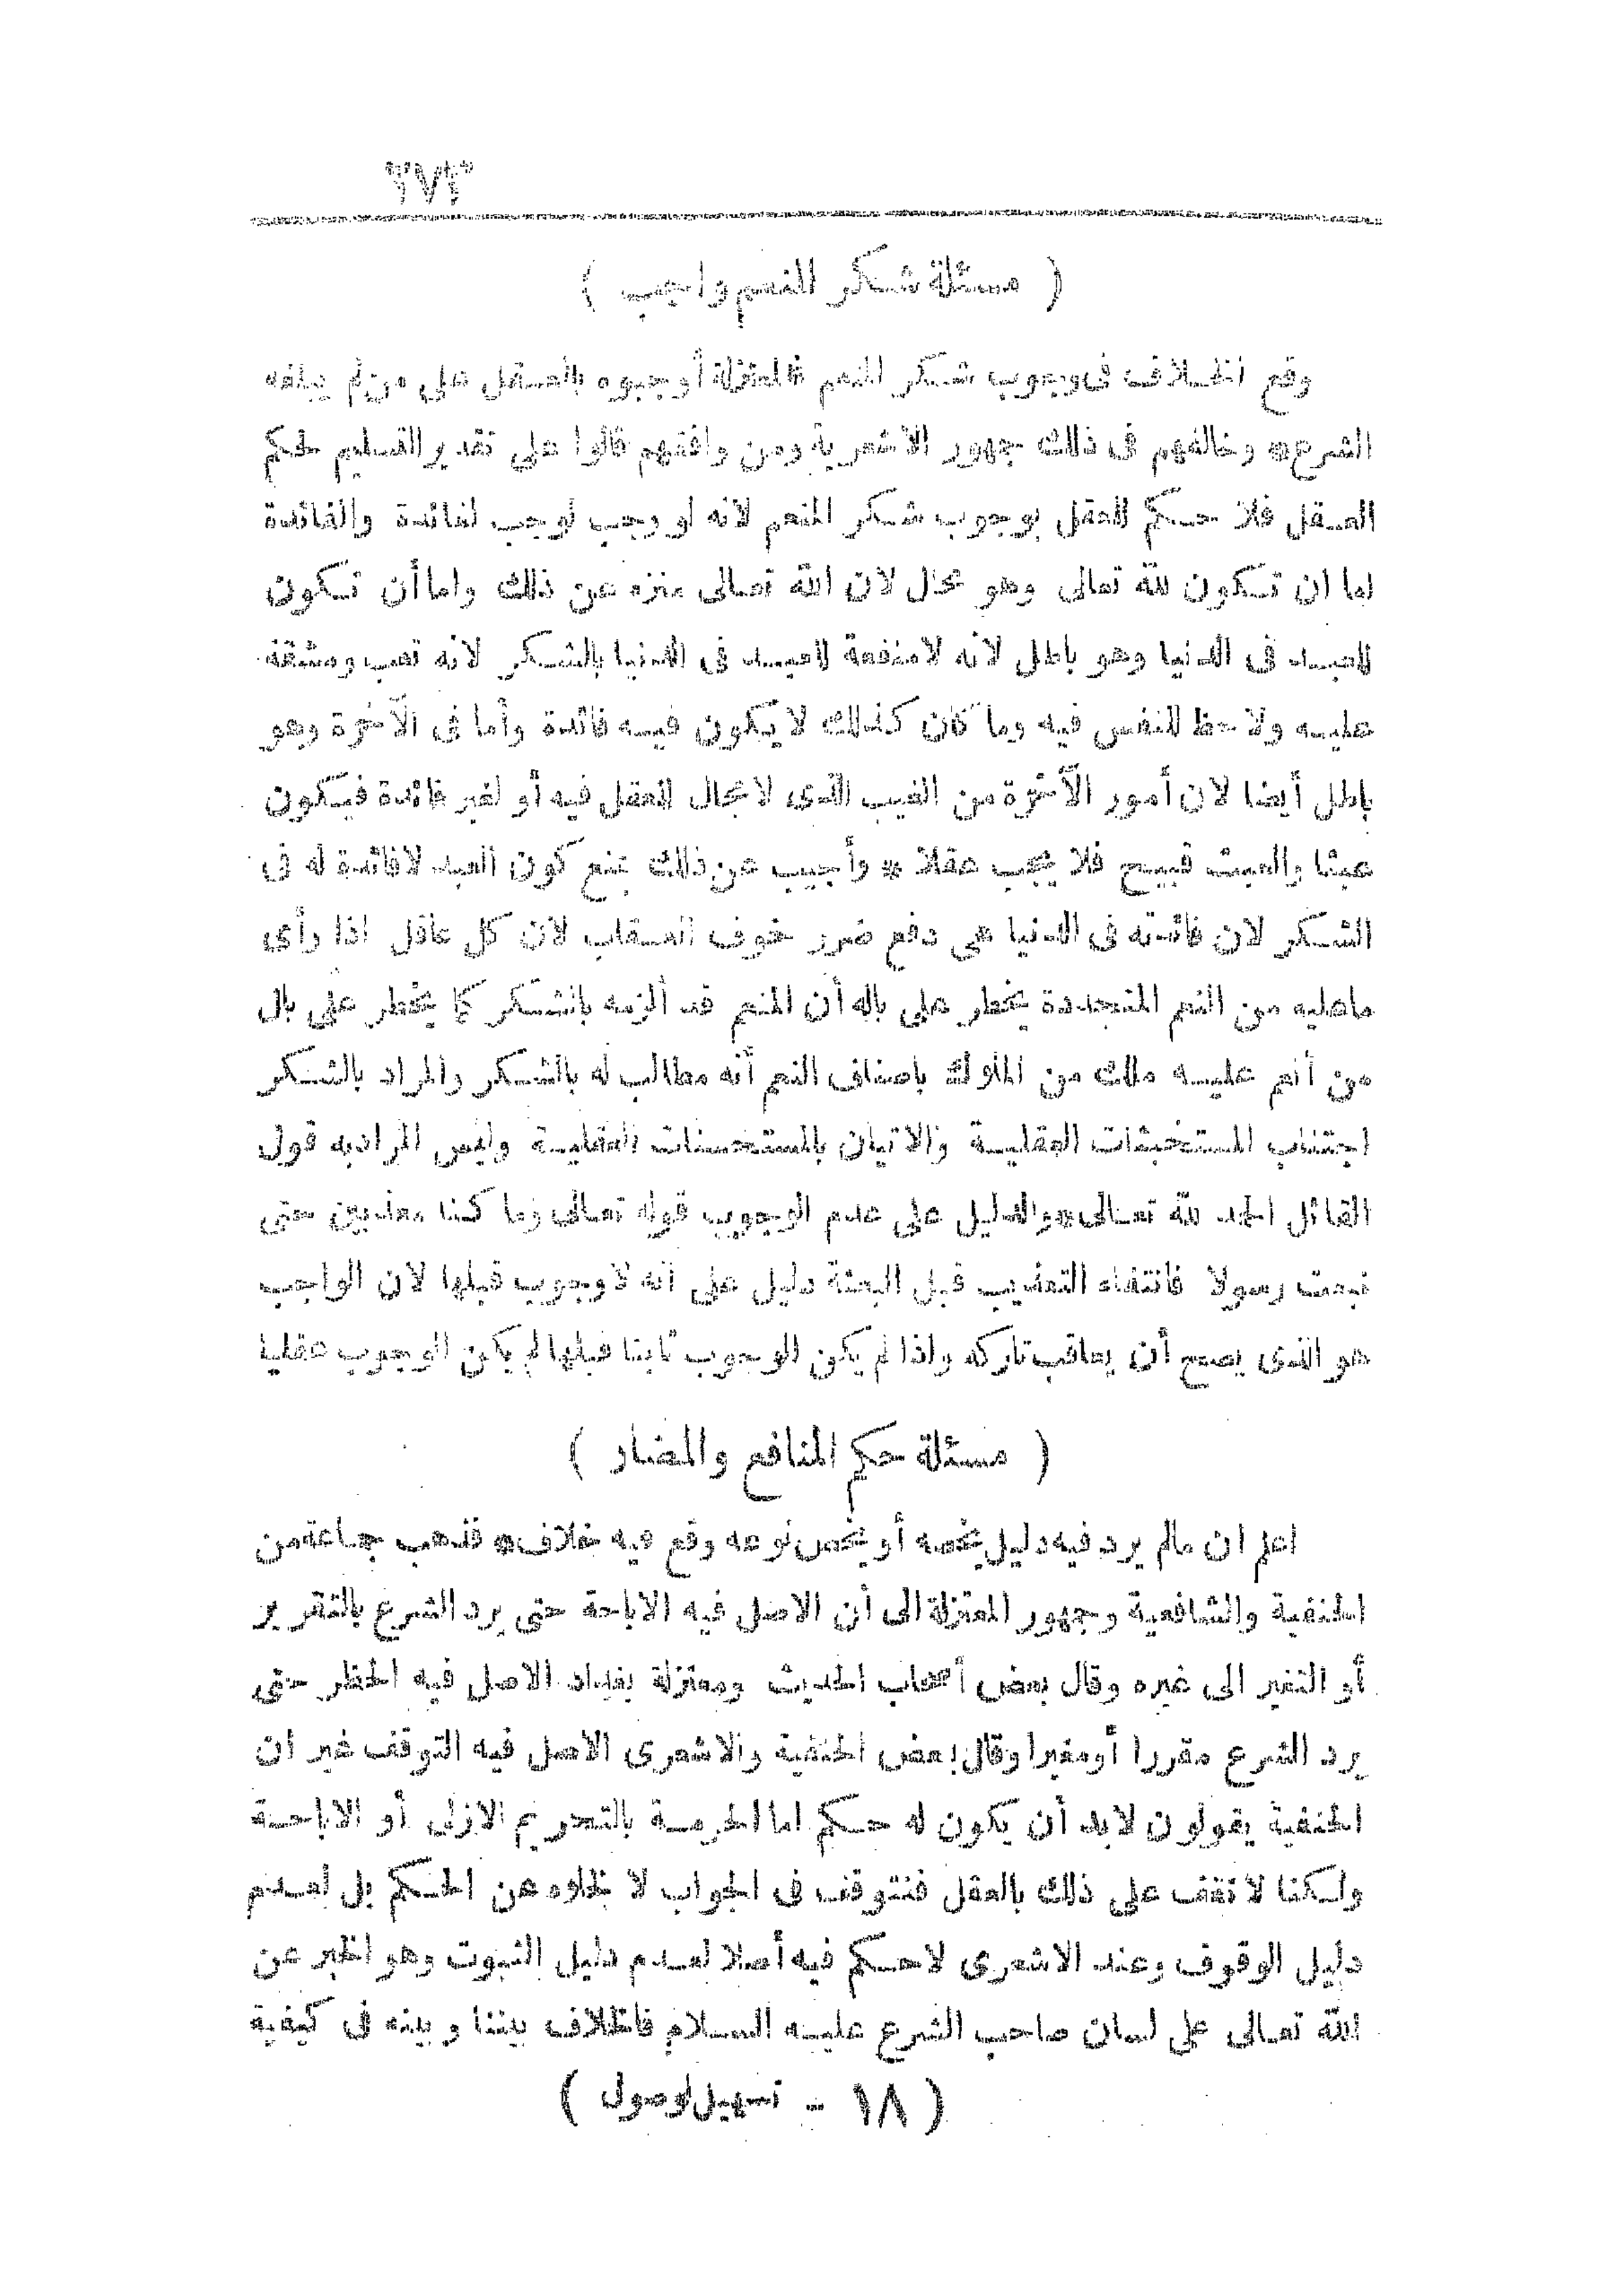 ٢٧٣
( مسئلة شكر المنعم واجب )
وقع الخلاف فى وجوب شكر المنعم فالمعتزلة أوجبوه بالعقل على من لم يبلغه
الشرع* وخالفهم فى ذلك جمهور الاشعرية ومن وافقهم قالوا على تقدير التسليم لحكم
العقل فلا حكم للعقل بوجوب شكر المنعم لانه لو وجب لوجب لفائدة والفائدة
اما ان تكون لله تعالى وهو محال لان الله تعالى منزه عن ذلك واما أن تكون
للعبد فى الدنيا وهو باطل لانه لامنفعة للعبد فى الدنيا بالشكر لانه تعب ومشقة
عليه ولا حظ للنفس فيه وما كان كذلك لا يكون فيه فائدة وأما فى الآخرة وهو
باطل أيضا لان أمور الآخرة من الغيب الذى لا مجال للعقل فيه أو لغير فائدة فيكون
عبثا والعبث قبيح فلا يجب عقلا * وأجيب عن ذلك بمنع كون العبد لافائدة له فى
الشكر لان فائدته فى الدنيا هى دفع ضرر خوف العقاب لان كل عاقل اذا رأى
ماعليه من النعم المتجددة يخطر على باله أن المنعم قد ألزمه بالشكر كما يخطر على بال
من أنعم عليه ملك من الملوك باصناف النعم أنه مطالب له بالشكر والمراد بالشكر
اجتناب المستخبثات العقلية والاتيان بالمستحسنات العقلية وليس المراد به قول
القائل الحمد لله تعالى*والدليل على عدم الوجوب قوله تعالى وما كنا معذبين حتى
نبعث رسولا فانتفاء التعذيب قبل البعثة دليل على أنه لاوجوب قبلها لان الواجب
هو الذى يصح أن يعاقب تاركه واذا لم يكن الوجوب ثابتا قبلها لم يكن الوجوب عقليا
( مسئلة حكم المنافع والمضار )
اعلم ان مالم يرد فيه دليل يخصه أو يخص نوعه وقع فيه خلاف* فذهب جماعة من
الحنفية والشافعية وجمهور المعتزلة الى أن الاصل فيه الاباحة حتى يرد الشرع بالتقرير
أو التغير الى غيره وقال بعض أصحاب الحديث ومعتزلة بغداد الاصل فيه الحظر حتى
يرد الشرع مقررا أومغيرا وقال بعض الحنفية والاشعرى الاصل فيه التوقف غير ان
الحنفية يقولون لابد أن يكون له حكم اما الحرمة بالتحريم الازلى أو الاباحة
ولكنا لا نقف على ذلك بالعقل فنتوقف فى الجواب لا لخلوه عن الحكم بل لعدم
دليل الوقوف وعند الاشعرى لاحكم فيه أصلا لعدم دليل الثبوت وهو الخبر عن
الله تعالى على لسان صاحب الشرع عليه السلام فالخلاف بيننا وبينه فى كيفية
( ١٨ - تسهيل الوصول )